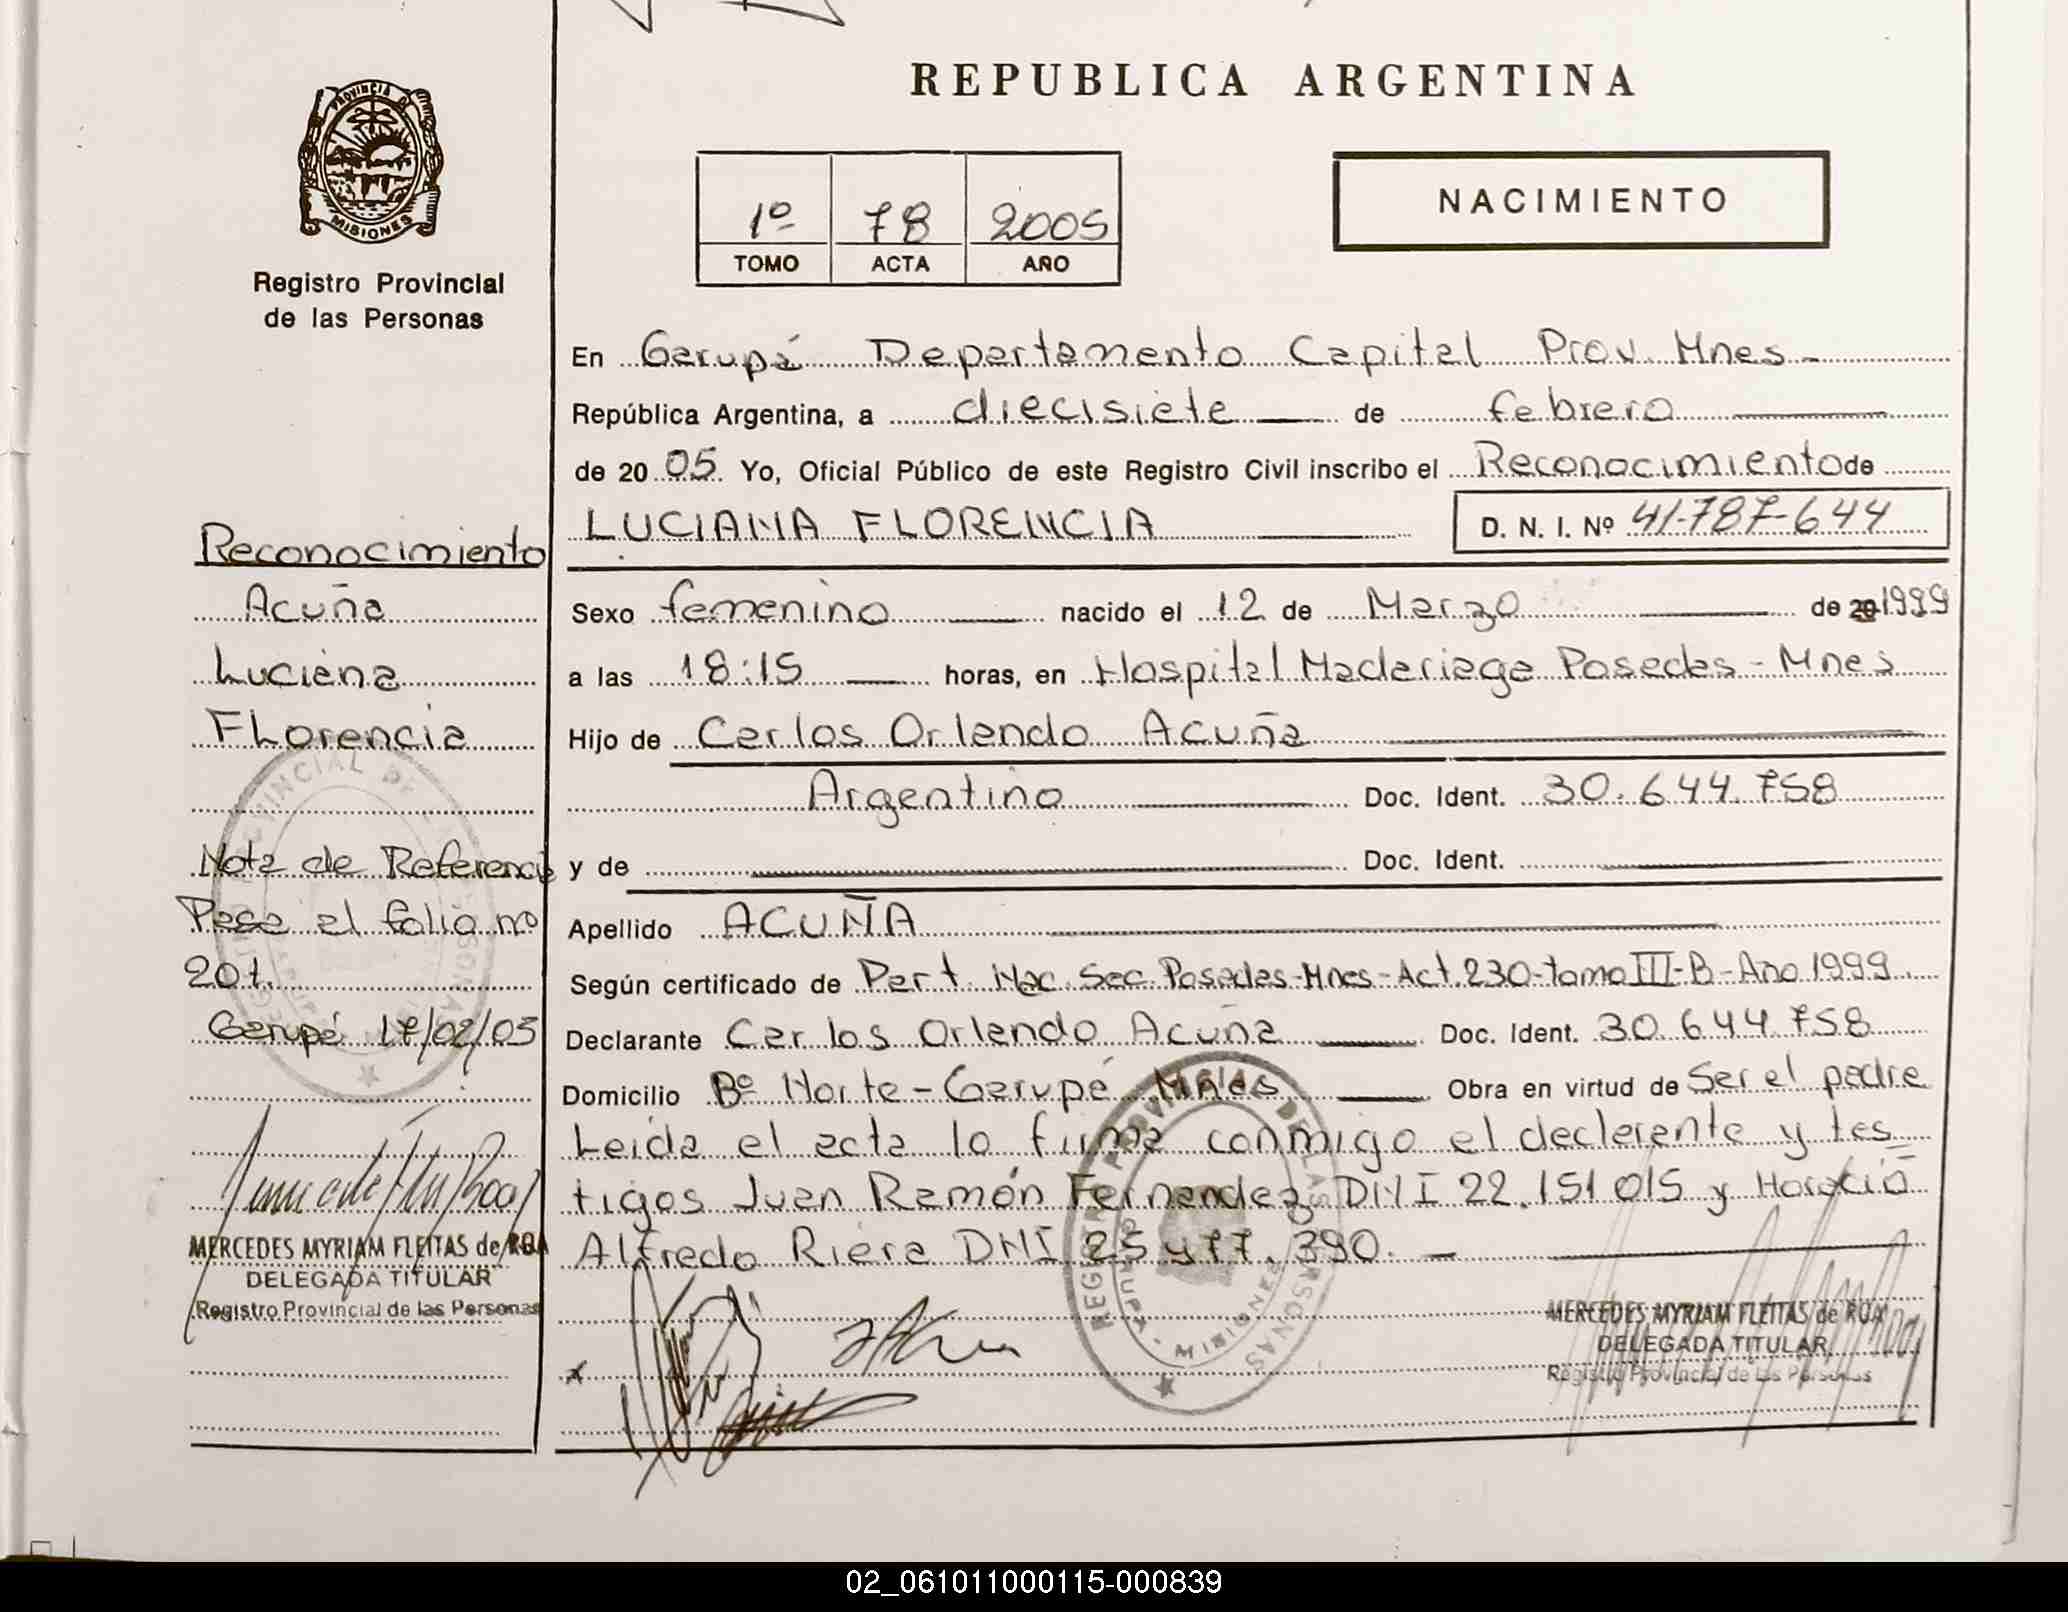 REPUBLICA ARGENTINA
PROVINCIA D
MISIONES
Registro Provincial
de las Personas
1º 78 2005
TOMO ACTA AÑO
NACIMIENTO
En Garupá Departamento Capital Prov. Mnes-
República Argentina, a diecisiete de febrero
de 20 05 Yo, Oficial Público de este Registro Civil inscribo el Reconocimiento de
LUCIANA FLORENCIA D. N. I. Nº 41-787-644
Sexo femenino nacido el 12 de Marzo de 20 1999
a las 18:15 horas, en Hospital Madariaga Posadas - Mnes
Hijo de Carlos Orlando Acuña
Argentino Doc. Ident. 30.644.758
y de Doc. Ident.
Apellido ACUÑA
Según certificado de Part. Nac. Sec. Posadas-Mnes-Act. 230-tomo III-B-Año 1999
Declarante Carlos Orlando Acuña Doc. Ident. 30.644.758
Domicilio Bº Norte-Garupá Mnes Obra en virtud de Ser el padre
Leída el acta lo firma conmigo el declarante y tes
tigos Juan Ramón Fernandez DNI 22.151.015 y Horacio
Alfredo Riera DNI 25 477.390.
Reconocimiento
Acuña
Luciana
FLorencia
Nota de Referenci
Pasa al folio nº
201.
Garupá 17/02/05
MERCEDES MYRIAM FLEITAS de ROA
DELEGADA TITULAR
Registro Provincial de las Personas
REGISTRO PROVINCIAL DE LAS PERSONAS
GARUPA - MISIONES
MERCEDES MYRIAM FLEITAS de ROA
DELEGADA TITULAR
Registro Provincial de las Personas
02_061011000115-000839